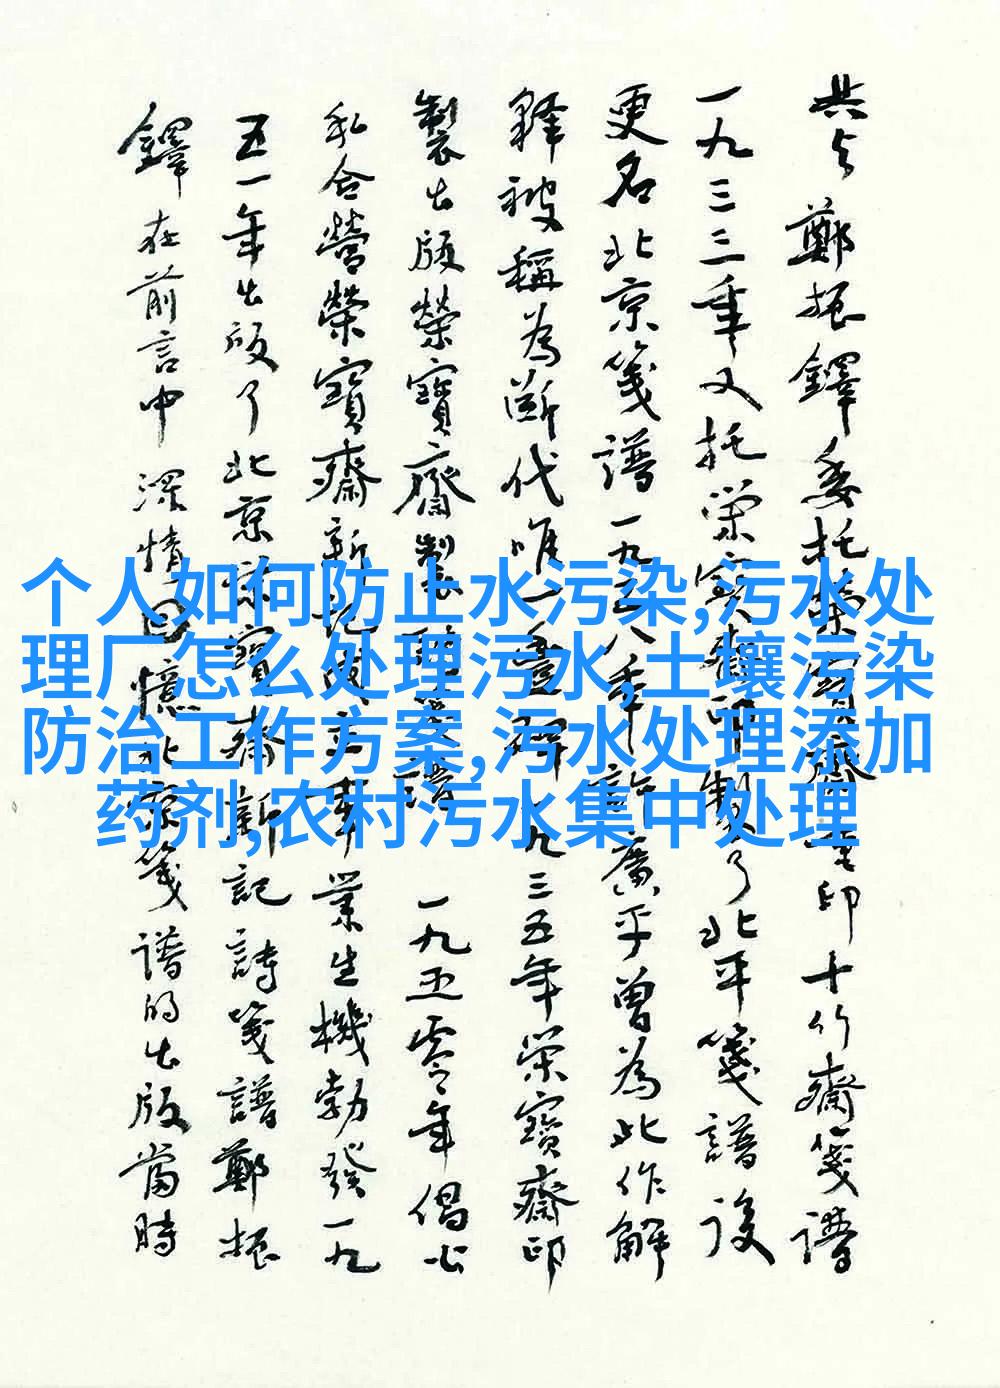 共与鄭振鐸委托榮寶齋 印十竹齋箋譜
一九三三年又托榮寶齋印製了北平箋譜後
更名北京箋譜一九五八年許廣平曾為此作解
釋被稱為斷代唯一 一九三五年榮寶齋印
製出版榮寶齋製 箋譜一九五零年倡公
私合營榮寶齋新記 事業生機勃發一九
五一年出版了北京榮寶齋新記詩箋譜鄭振
鐸在前言中深情回憶北京箋譜的出版當時
个人如何防止水污染,污水处
理厂怎么处理污水,土壤污染
防治工作方案,污水处理添加
药剂,农村污水集中处理